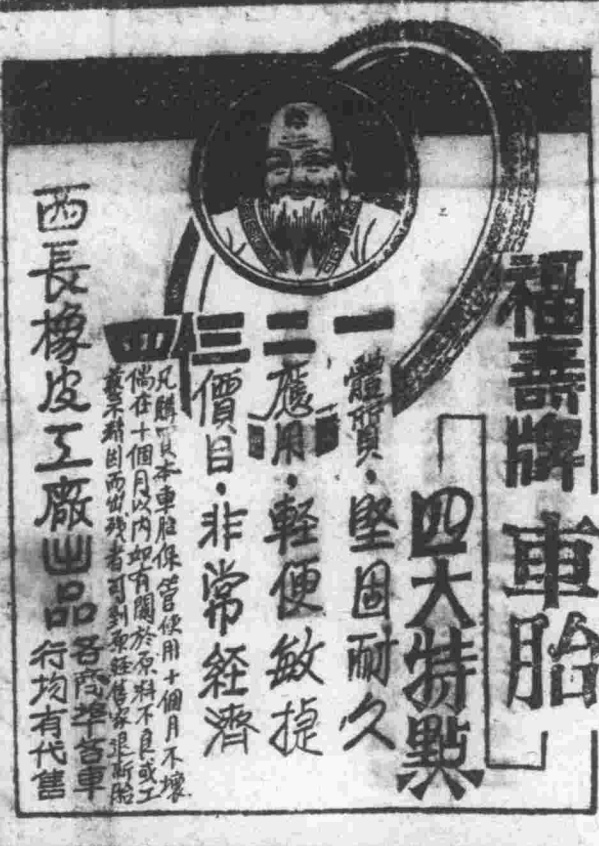 福壽牌車胎
四大特點
一 體質，堅固耐久
二 應用，軽便敏捷
三 價目，非常経濟
四 凡購買本車胎保管使用十個月不壞
倘在十個月以內如有關於原料不良或工
藝不精因而出殘者可到原経售家退新胎
西長橡皮工廠出品
各商埠各車
行均有代售